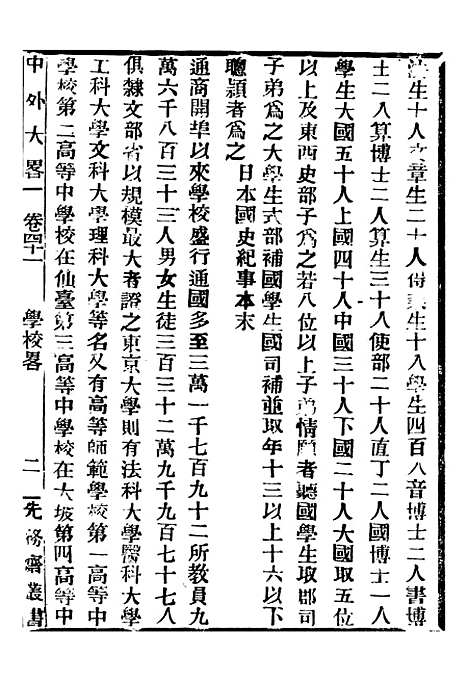 法生十人文章生二十人得業生十人學生四百人音博士二人書博
士二人算博士二人算生三十人使部二十人直丁二人博士一人
學生大國五十人上國四十人中國三十人下國二十人大國取五位
以上及東西史部子為之若八位以上子弟情願者聽國學生取郡司
子弟為之大學生式部補國學生國司補並取年十三以上十六以下
聰穎者為之 日本國史紀事本末
通商開埠以來學校盛行通國多至三萬一千七百九十二所教員九
萬六千八百三十三人男女生徒三百三十二萬九千九百七十七人
俱隸文部省以規模最大者證之東京大學則有法科大學醫科大學
工科大學文科大學理科大學等名又有高等師範學校第一高等中
學校第二高等中學校在仙臺第三高等中學校在大坂第四高等中
中外大畧 卷四十一 學校畧 二 先修齋叢書